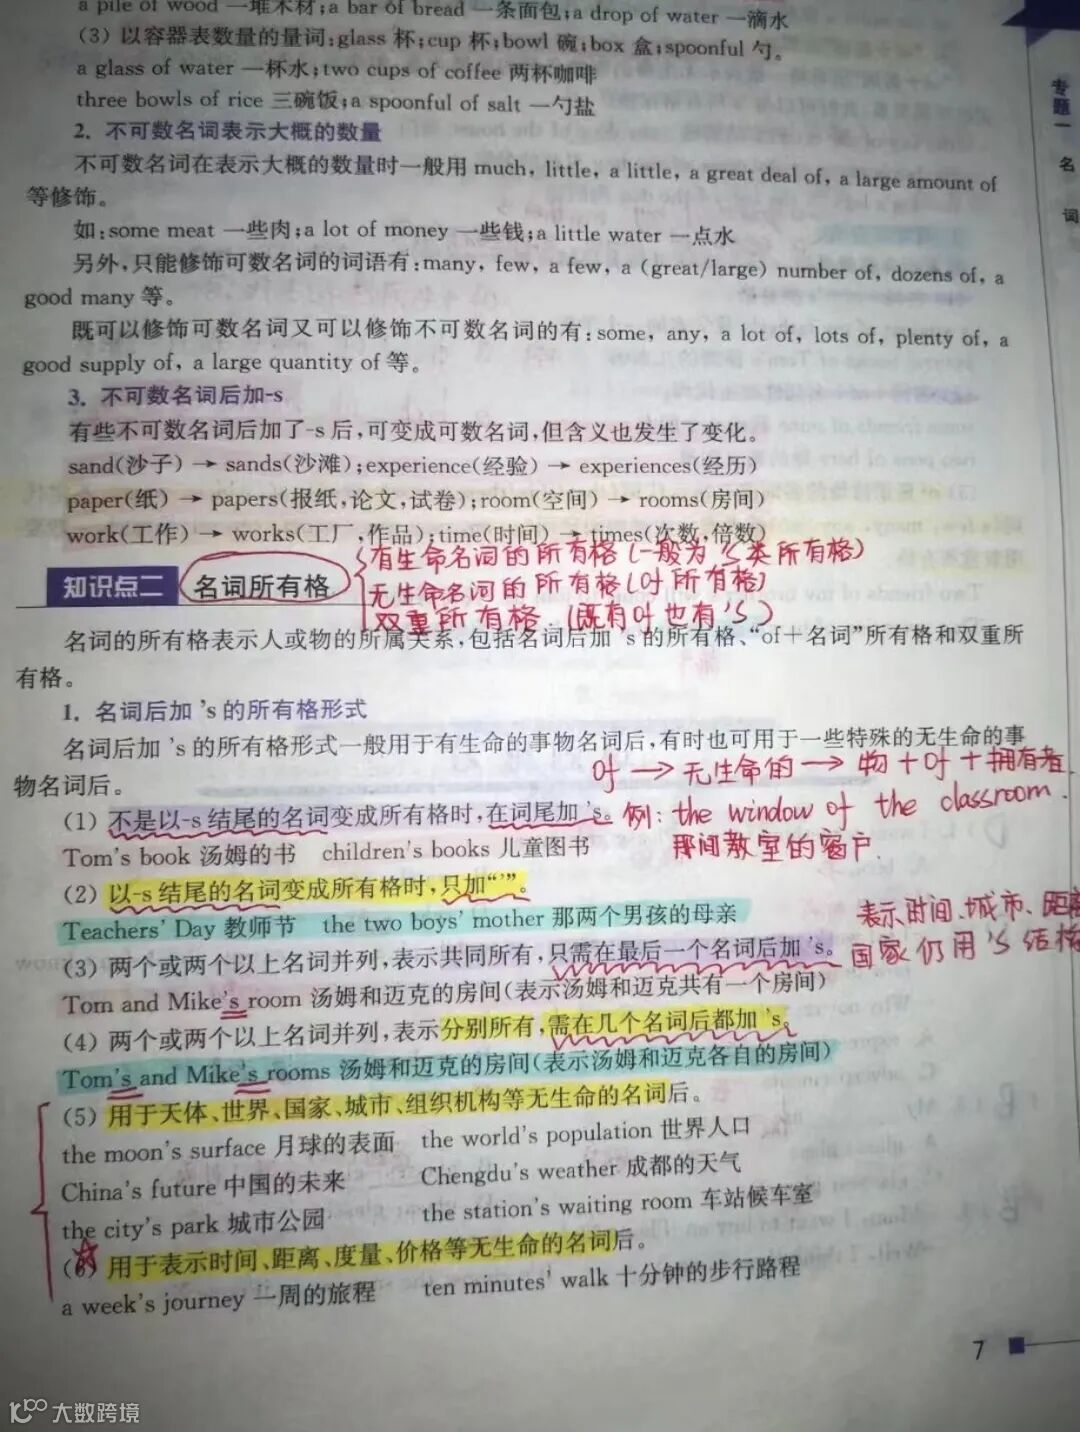 a pile of wood 一堆木材;a bar of bread 一条面包;a drop of water 一滴水
(3) 以容器表数量的量词:glass 杯;cup 杯;bowl 碗;box 盒;spoonful 勺。
a glass of water 一杯水;two cups of coffee 两杯咖啡
three bowls of rice 三碗饭;a spoonful of salt 一勺盐
2. 不可数名词表示大概的数量
不可数名词在表示大概的数量时一般用 much, little, a little, a great deal of, a large amount of
等修饰。
如:some meat 一些肉;a lot of money 一些钱;a little water 一点水
另外,只能修饰可数名词的词语有:many, few, a few, a (great/large) number of, dozens of, a
good many 等。
既可以修饰可数名词又可以修饰不可数名词的有:some, any, a lot of, lots of, plenty of, a
good supply of, a large quantity of 等。
3. 不可数名词后加-s
有些不可数名词后加了-s 后,可变成可数名词,但含义也发生了变化。
sand(沙子) → sands(沙滩);experience(经验) → experiences(经历)
paper(纸) → papers(报纸,论文,试卷);room(空间) → rooms(房间)
work(工作) → works(工厂,作品);time(时间) → times(次数,倍数)
有生命名词的所有格(一般为's类所有格)
知识点二 名词所有格
无生命名词的所有格(of所有格)
双重所有格.(既有of也有's)
名词的所有格表示人或物的所属关系,包括名词后加 's 的所有格、“of+名词”所有格和双重所
有格。
1. 名词后加 's 的所有格形式
名词后加 's 的所有格形式一般用于有生命的事物名词后,有时也可用于一些特殊的无生命的事
物名词后。
of → 无生命的 → 物+of+拥有者
(1) 不是以-s 结尾的名词变成所有格时,在词尾加 's。
例: the window of the classroom.
Tom's book 汤姆的书 children's books 儿童图书
那间教室的窗户.
(2) 以-s 结尾的名词变成所有格时,只加“'”。
Teachers' Day 教师节 the two boys' mother 那两个男孩的母亲
表示时间、城市、距离
国家仍用's结构
(3) 两个或两个以上名词并列,表示共同所有,只需在最后一个名词后加 's。
Tom and Mike's room 汤姆和迈克的房间(表示汤姆和迈克共有一个房间)
(4) 两个或两个以上名词并列,表示分别所有,需在几个名词后都加 's。
Tom's and Mike's rooms 汤姆和迈克的房间(表示汤姆和迈克各自的房间)
(5) 用于天体、世界、国家、城市、组织机构等无生命的名词后。
the moon's surface 月球的表面 the world's population 世界人口
China's future 中国的未来 Chengdu's weather 成都的天气
the city's park 城市公园 the station's waiting room 车站候车室
(6) 用于表示时间、距离、度量、价格等无生命的名词后。
a week's journey 一周的旅程 ten minutes' walk 十分钟的步行路程
专题一 名词
7
大数跨境